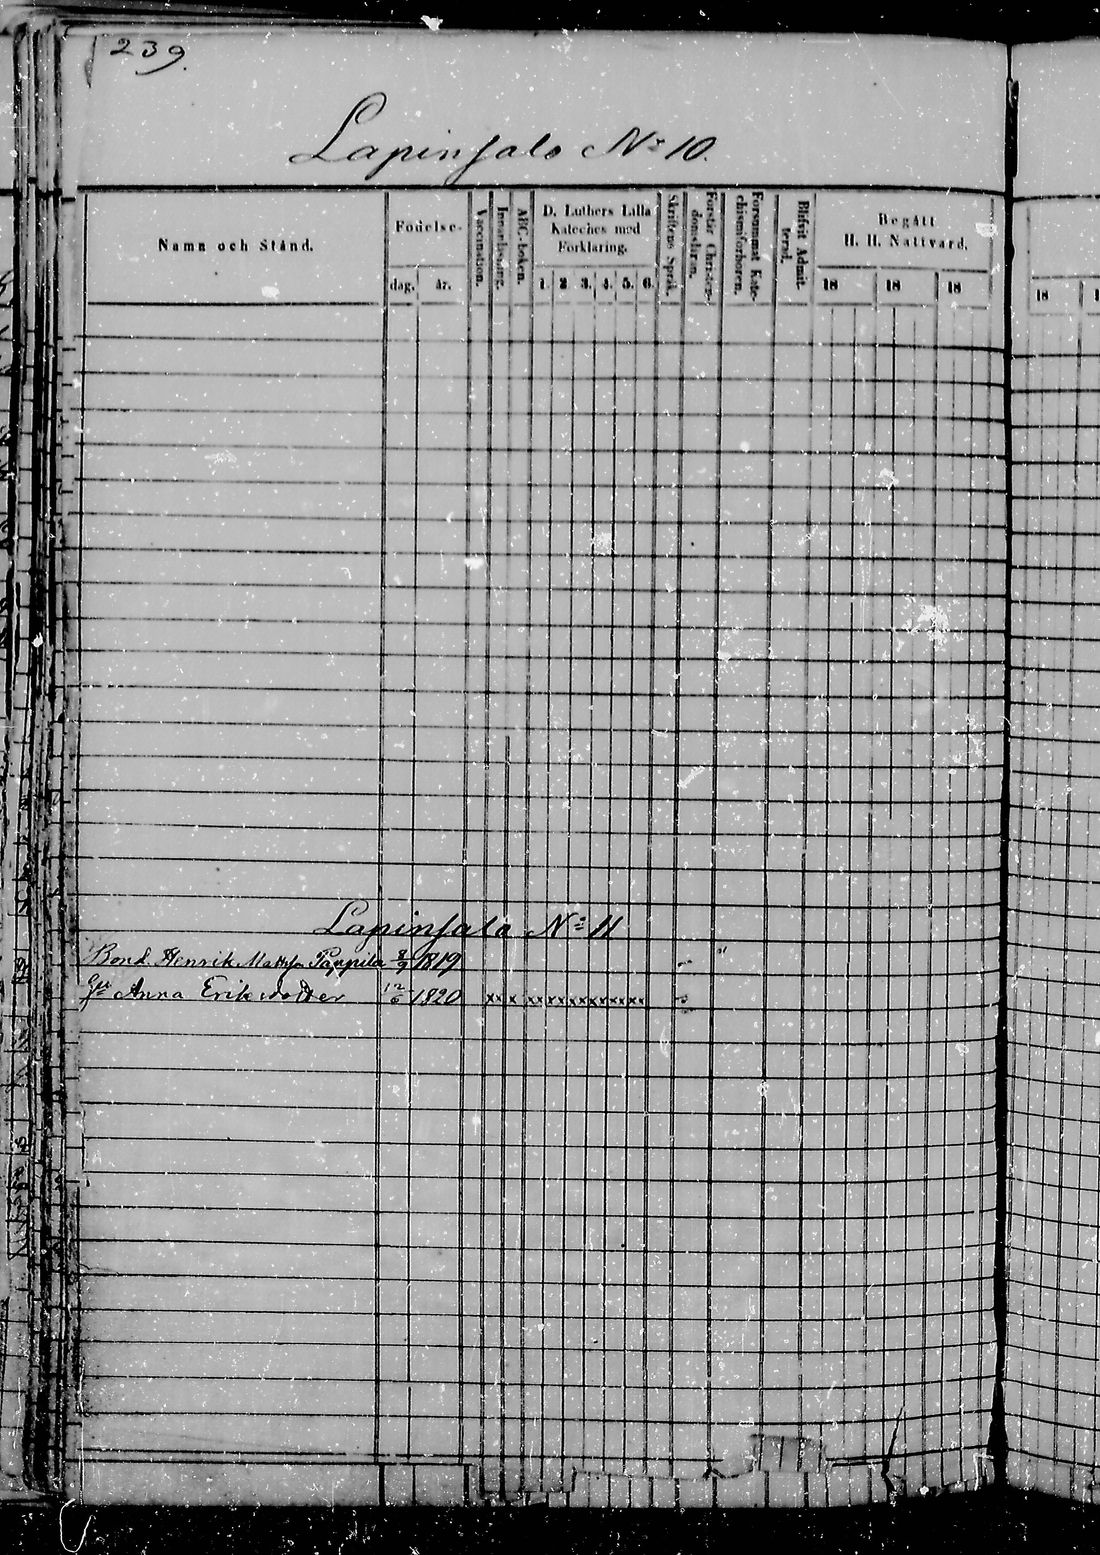 239.
Lapinsalo No 10.
Namn och Stånd.
Födelse-
dag. år.
Vaccination.
Innanläsning.
ABC-boken.
D. Luthers Lilla
Kateches med
Förklaring.
1. 2 3. 4. 5. 6.
Skriftens Språk.
Förstår Christen-
domsläran.
Försummat Kate-
chismiförhören.
Blifvit Admit-
terad.
Begått
H. H. Nattvard.
18 18 18
18
Lapinsalo No 11
Bond. Henrik Mattss Pappila 8/9 1819
Hu Anna Eriksdotter 12/6 1820 xxx xxxxxxxxxxxx